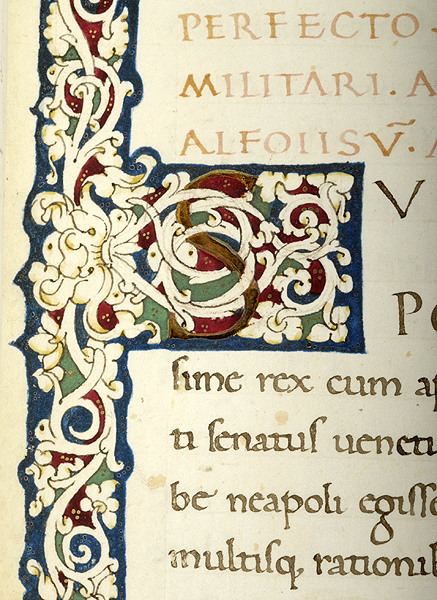 PERFECTO ·
MILITARI . A
ALFOIISV̄. A
S V
PO
sime rex cum as
ti senatus uenetu
be neapoli egisse
multisq, rationib